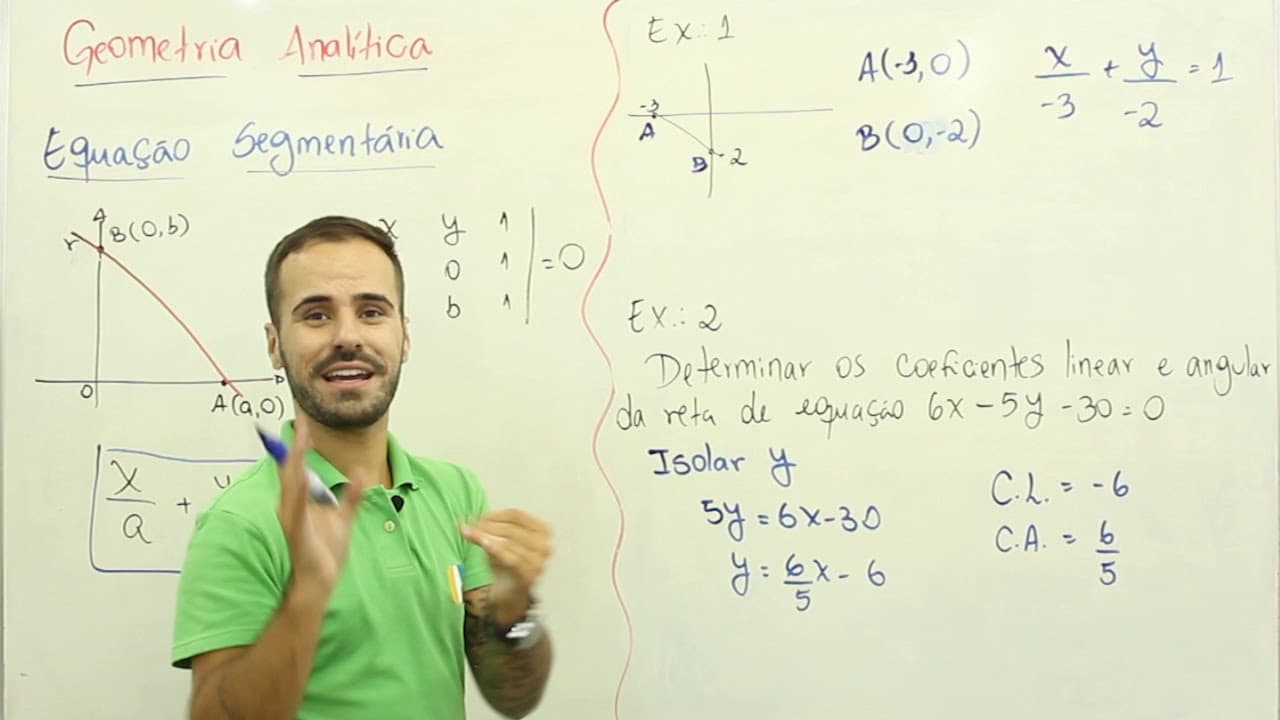 Geometria Analítica
Equação Segmentária
r
B(0,b)
0
A(a,0)
x y 1
0 1
b 1
=0
x/a +
Ex.: 1
-3
A
B
-2
A(-3,0)
B(0,-2)
x/-3 + y/-2 = 1
Ex.: 2
Determinar os coeficientes linear e angular
da reta de equação 6x-5y-30=0
Isolar y
5y=6x-30
y=6/5x-6
C.L. = -6
C.A. = 6/5